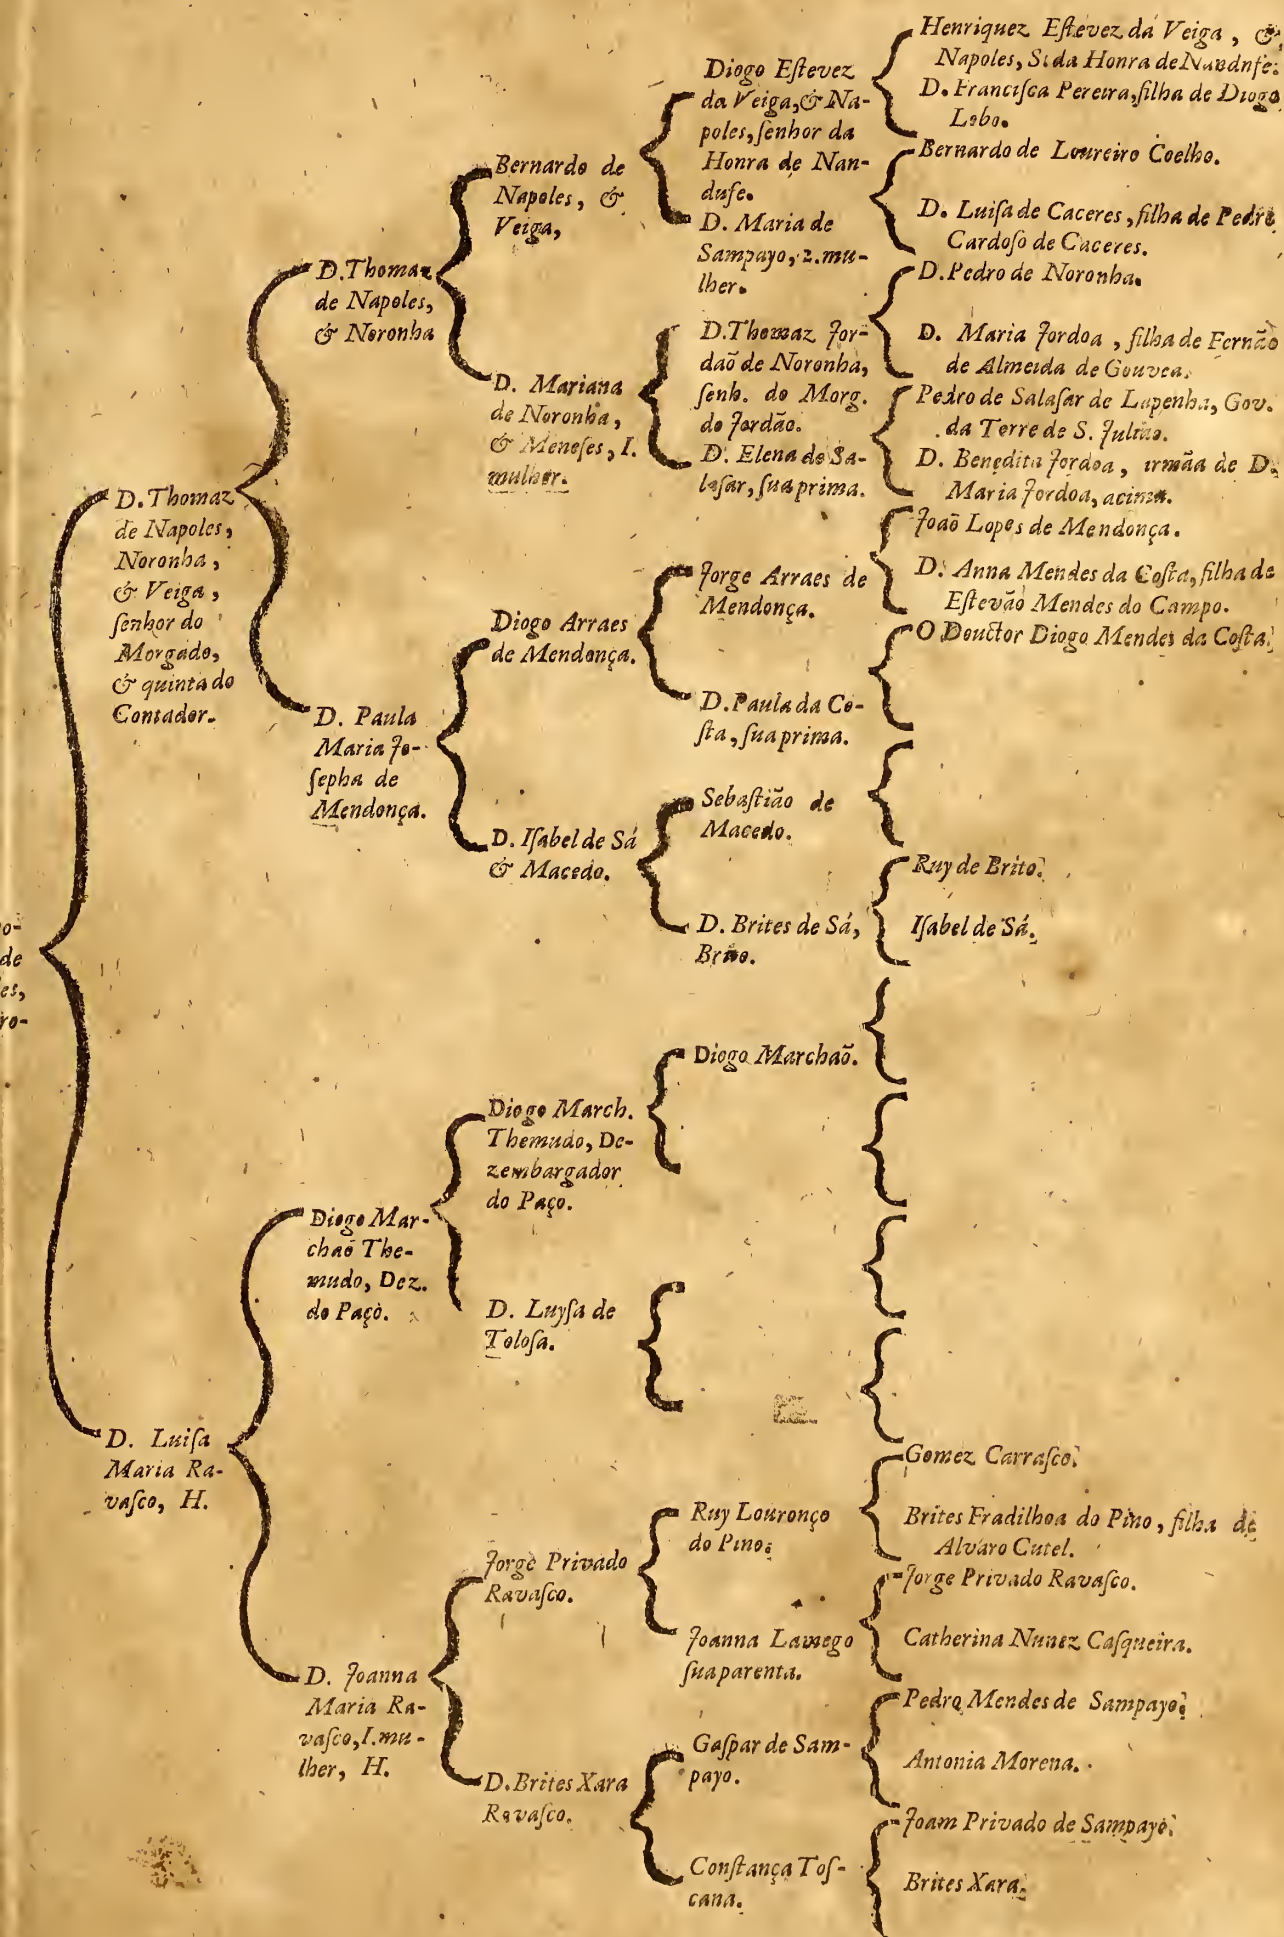 o-
de
es,
ro-
D. Thomaz
de Napoles,
Noronha,
& Veiga,
ſenhor do
Morgado,
& quinta do
Contador.
D. Luiſa
Maria Ra-
vaſco, H.
D. Thomaz
de Napoles,
& Noronha
D. Paula
Maria Jo-
ſepha de
Mendonça.
Diogo Mar-
chaõ The-
mudo, Dez.
do Paço.
D. Joanna
Maria Ra-
vaſco, I. mu-
lher, H.
Bernardo de
Napoles, &
Veiga,
D. Mariana
de Noronha,
& Meneſes, I.
mulher.
Diogo Arraes
de Mendonça.
D. Iſabel de Sá
& Macedo.
Diogo March.
Themudo, De-
zembargador
do Paço.
D. Luyſa de
Toloſa.
Jorge Privado
Ravaſco.
D. Brites Xara
Ravaſco.
Diogo Eſtevez
da Veiga, & Na-
poles, ſenhor da
Honra de Nan-
dufe.
D. Maria de
Sampayo, 2. mu-
lher.
D. Thomaz Jor-
daõ de Noronha,
ſenh. do Morg.
do Jordão.
D. Elena de Sa-
laſar, ſua prima.
Jorge Arraes de
Mendonça.
D. Paula da Co-
ſta, ſua prima.
Sebaſtião de
Macedo.
D. Brites de Sá,
Brito.
Diogo Marchaõ.
Ruy Louronço
do Pino.
Joanna Lamego
ſua parenta.
Gaſpar de Sam-
payo.
Conſtança Toſ-
cana.
Henriquez Eſtevez da Veiga, &
Napoles, S. da Honra de Nandufe.
D. Franciſca Pereira, filha de Diogo
Lobo.
Bernardo de Loureiro Coelho.
D. Luiſa de Caceres, filha de Pedro
Cardoſo de Caceres.
D. Pedro de Noronha.
D. Maria Jordoa, filha de Fernão
de Almeida de Gouvea.
Pedro de Salaſar de Lapenha, Gov.
da Torre de S. Julião.
D. Benedita Jordoa, irmãa de D.
Maria Jordoa, acima.
Joaõ Lopes de Mendonça.
D. Anna Mendes da Coſta, filha de
Eſtevão Mendes do Campo.
O Douctor Diogo Mendes da Coſta.
Ruy de Brito.
Iſabel de Sá.
Gomez Carraſco.
Brites Fradilhoa do Pino, filha de
Alvaro Cutel.
Jorge Privado Ravaſco.
Catherina Nunez Caſqueira.
Pedro Mendes de Sampayo.
Antonia Morena.
Joam Privado de Sampayo.
Brites Xara.